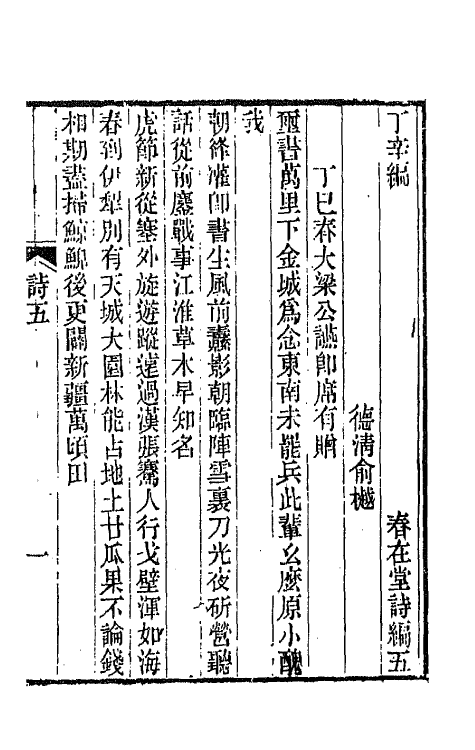 丁辛編　春在堂詩編五
德清俞樾
丁巳春大梁公讌卽席有贈
璽書萬里下金城爲念東南未罷兵此輩幺麼原小醜
我
朝絳灌卽書生風前纛影朝臨陣雪裏刀光夜斫營聽
話從前鏖戰事江淮草木早知名
虎節新從塞外旋遊蹤遠過漢張騫人行戈壁渾如海
春到伊犁別有天城大園林能占地土甘瓜果不論錢
相期盡掃鯨鯢後更闢新疆萬頃田
詩五　一